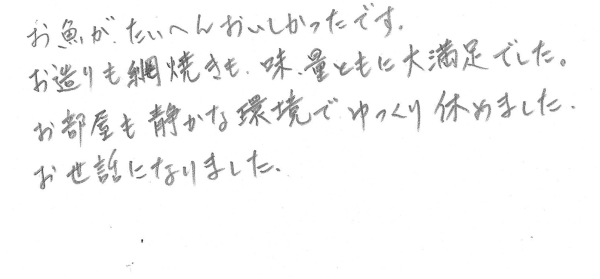 お魚が、たいへんおいしかったです。
お造りも網焼きも、味、量ともに大満足でした。
お部屋も静かな環境でゆっくり休めました。
お世話になりました。